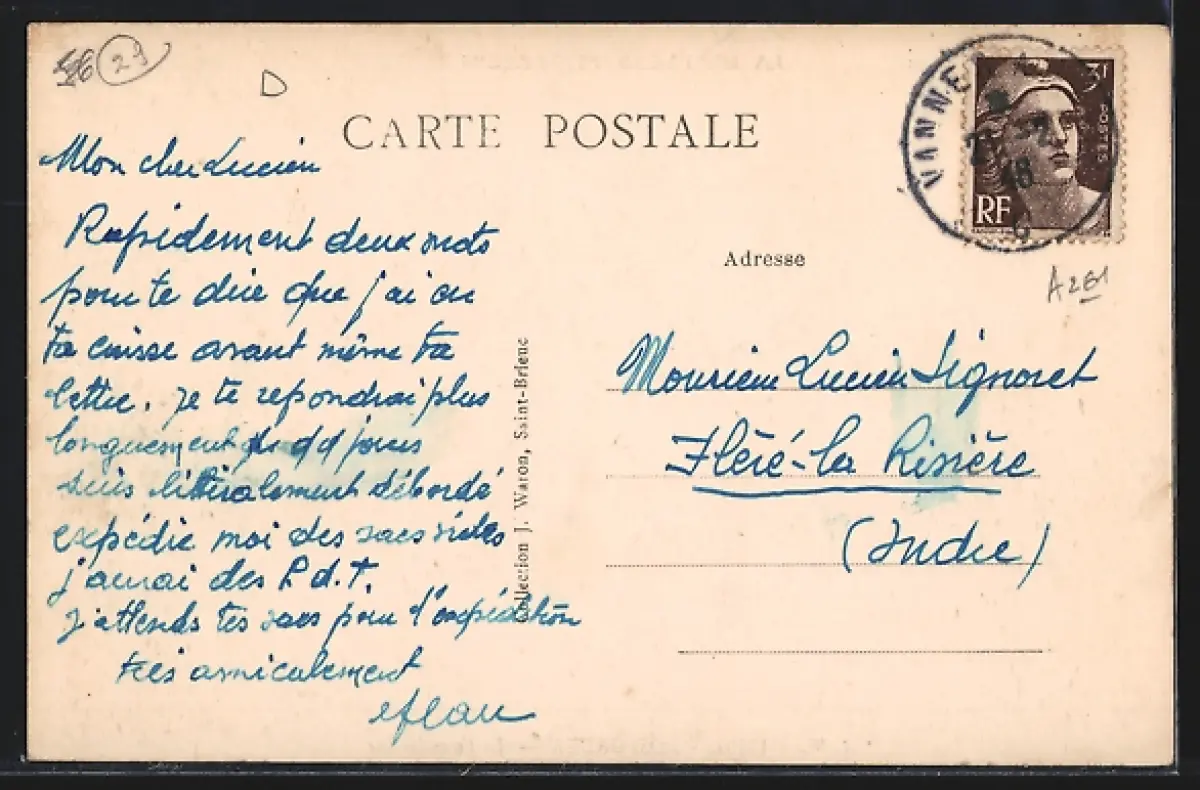 29
D
CARTE POSTALE
VANNES
3F
POSTES
RF
48
Mon cher Lucien
Rapidement deux mots
pour te dire que j'ai eu
ta caisse avant même ta
lettre. Je te repondrai plus
longuement ds qq jours
suis littéralement débordé
expédie moi des sacs vides
j'aurai des P.d.T.
J'attends tes sacs pour l'expédition
très amicalement
Collection J. Waron, Saint-Brieuc
Adresse
Monsieur Lucien Signoret
Fléré-la Rivière
(Indre)